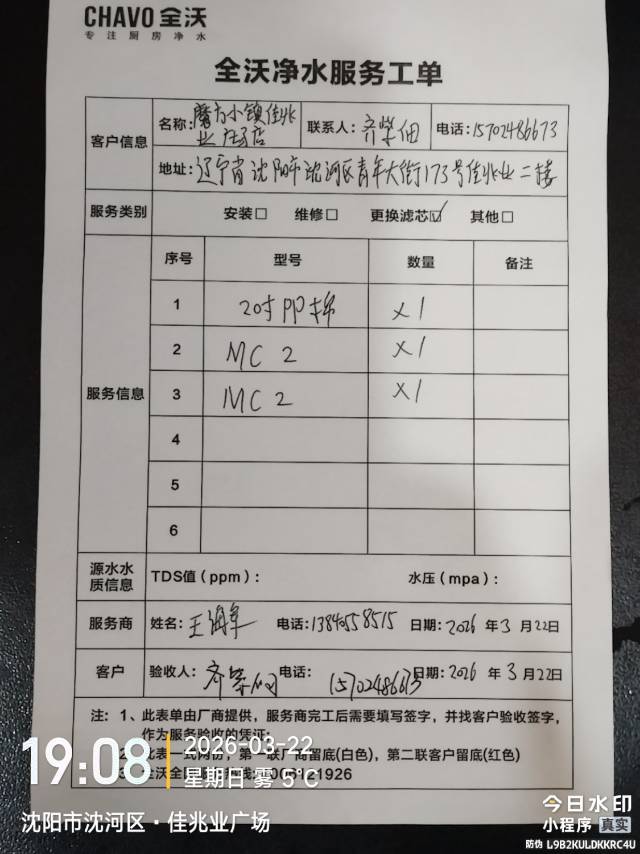 CHAVO 全沃
专注厨房净水
全沃净水服务工单
客户信息
名称: 魔方小镇佳兆业店
联系人: 齐紫佃
电话: 15702486673
地址: 辽宁省沈阳市沈河区青年大街173号佳兆业二楼
服务类别 安装□ 维修□ 更换滤芯☑ 其他□
服务信息
序号 型号 数量 备注
1 20寸PP棉 ×1
2 MC 2 ×1
3 MC 2 ×1
4
5
6
源水水质信息 TDS值(ppm): 水压(mpa):
服务商 姓名: 电话: 13840558515 日期: 2026 年 3 月 22日
客户 验收人: 电话: 15702486673 日期: 2026 年 3 月 22日
注: 1、此表单由厂商提供,服务商完工后需要填写签字,并找客户验收签字,
作为服务验收的凭证;
2、此表一式两份,第一联厂商留底(白色),第二联客户留底(红色)
3、全沃全国
19:08
2026-03-22
星期日 雾 5℃
沈阳市沈河区·佳兆业广场
今日水印
小程序 真实
防伪 L9B2KULDKKRC4U